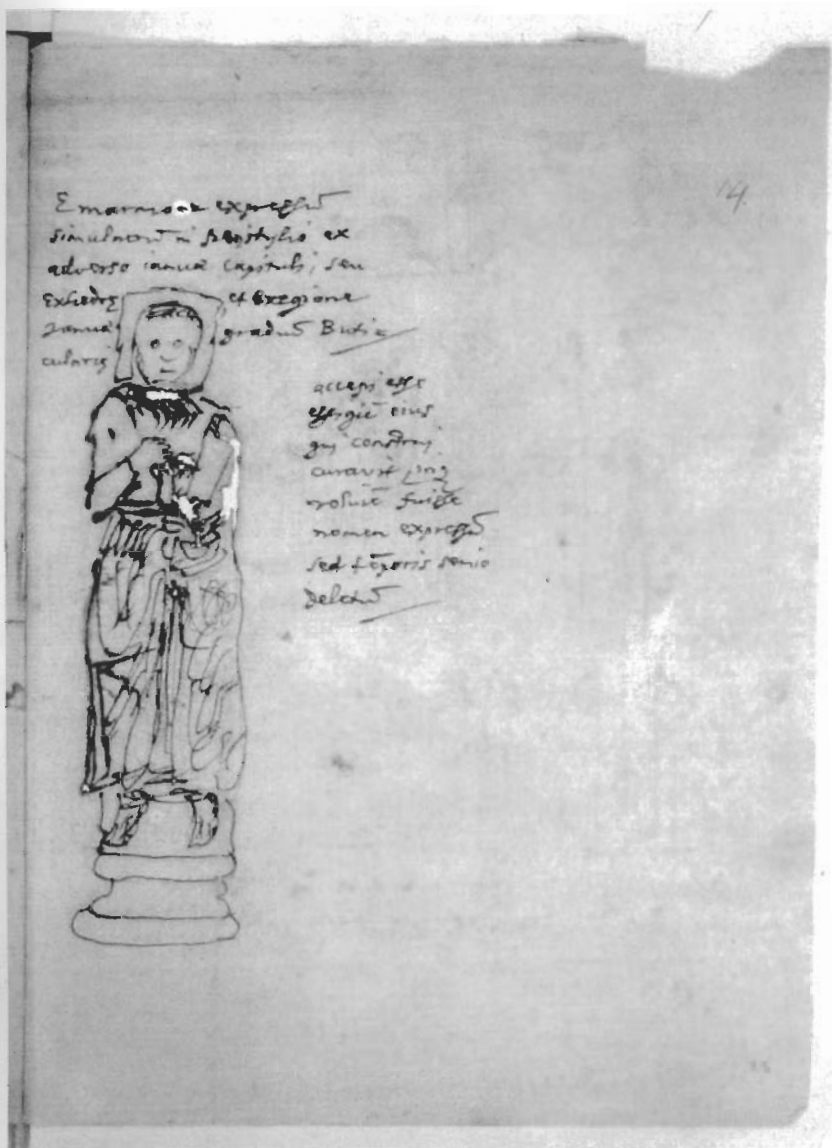 14
E marmore expressū
simulacrū in peristylio ex
adverso ianuæ Capituli, seu
Exhedrę et Exregione
Ianuæ graduū
cularis
accepi esse
effigiē eius
qui construi
curavit
fuisse
nomen expressū
sed tēporis senio
deletū